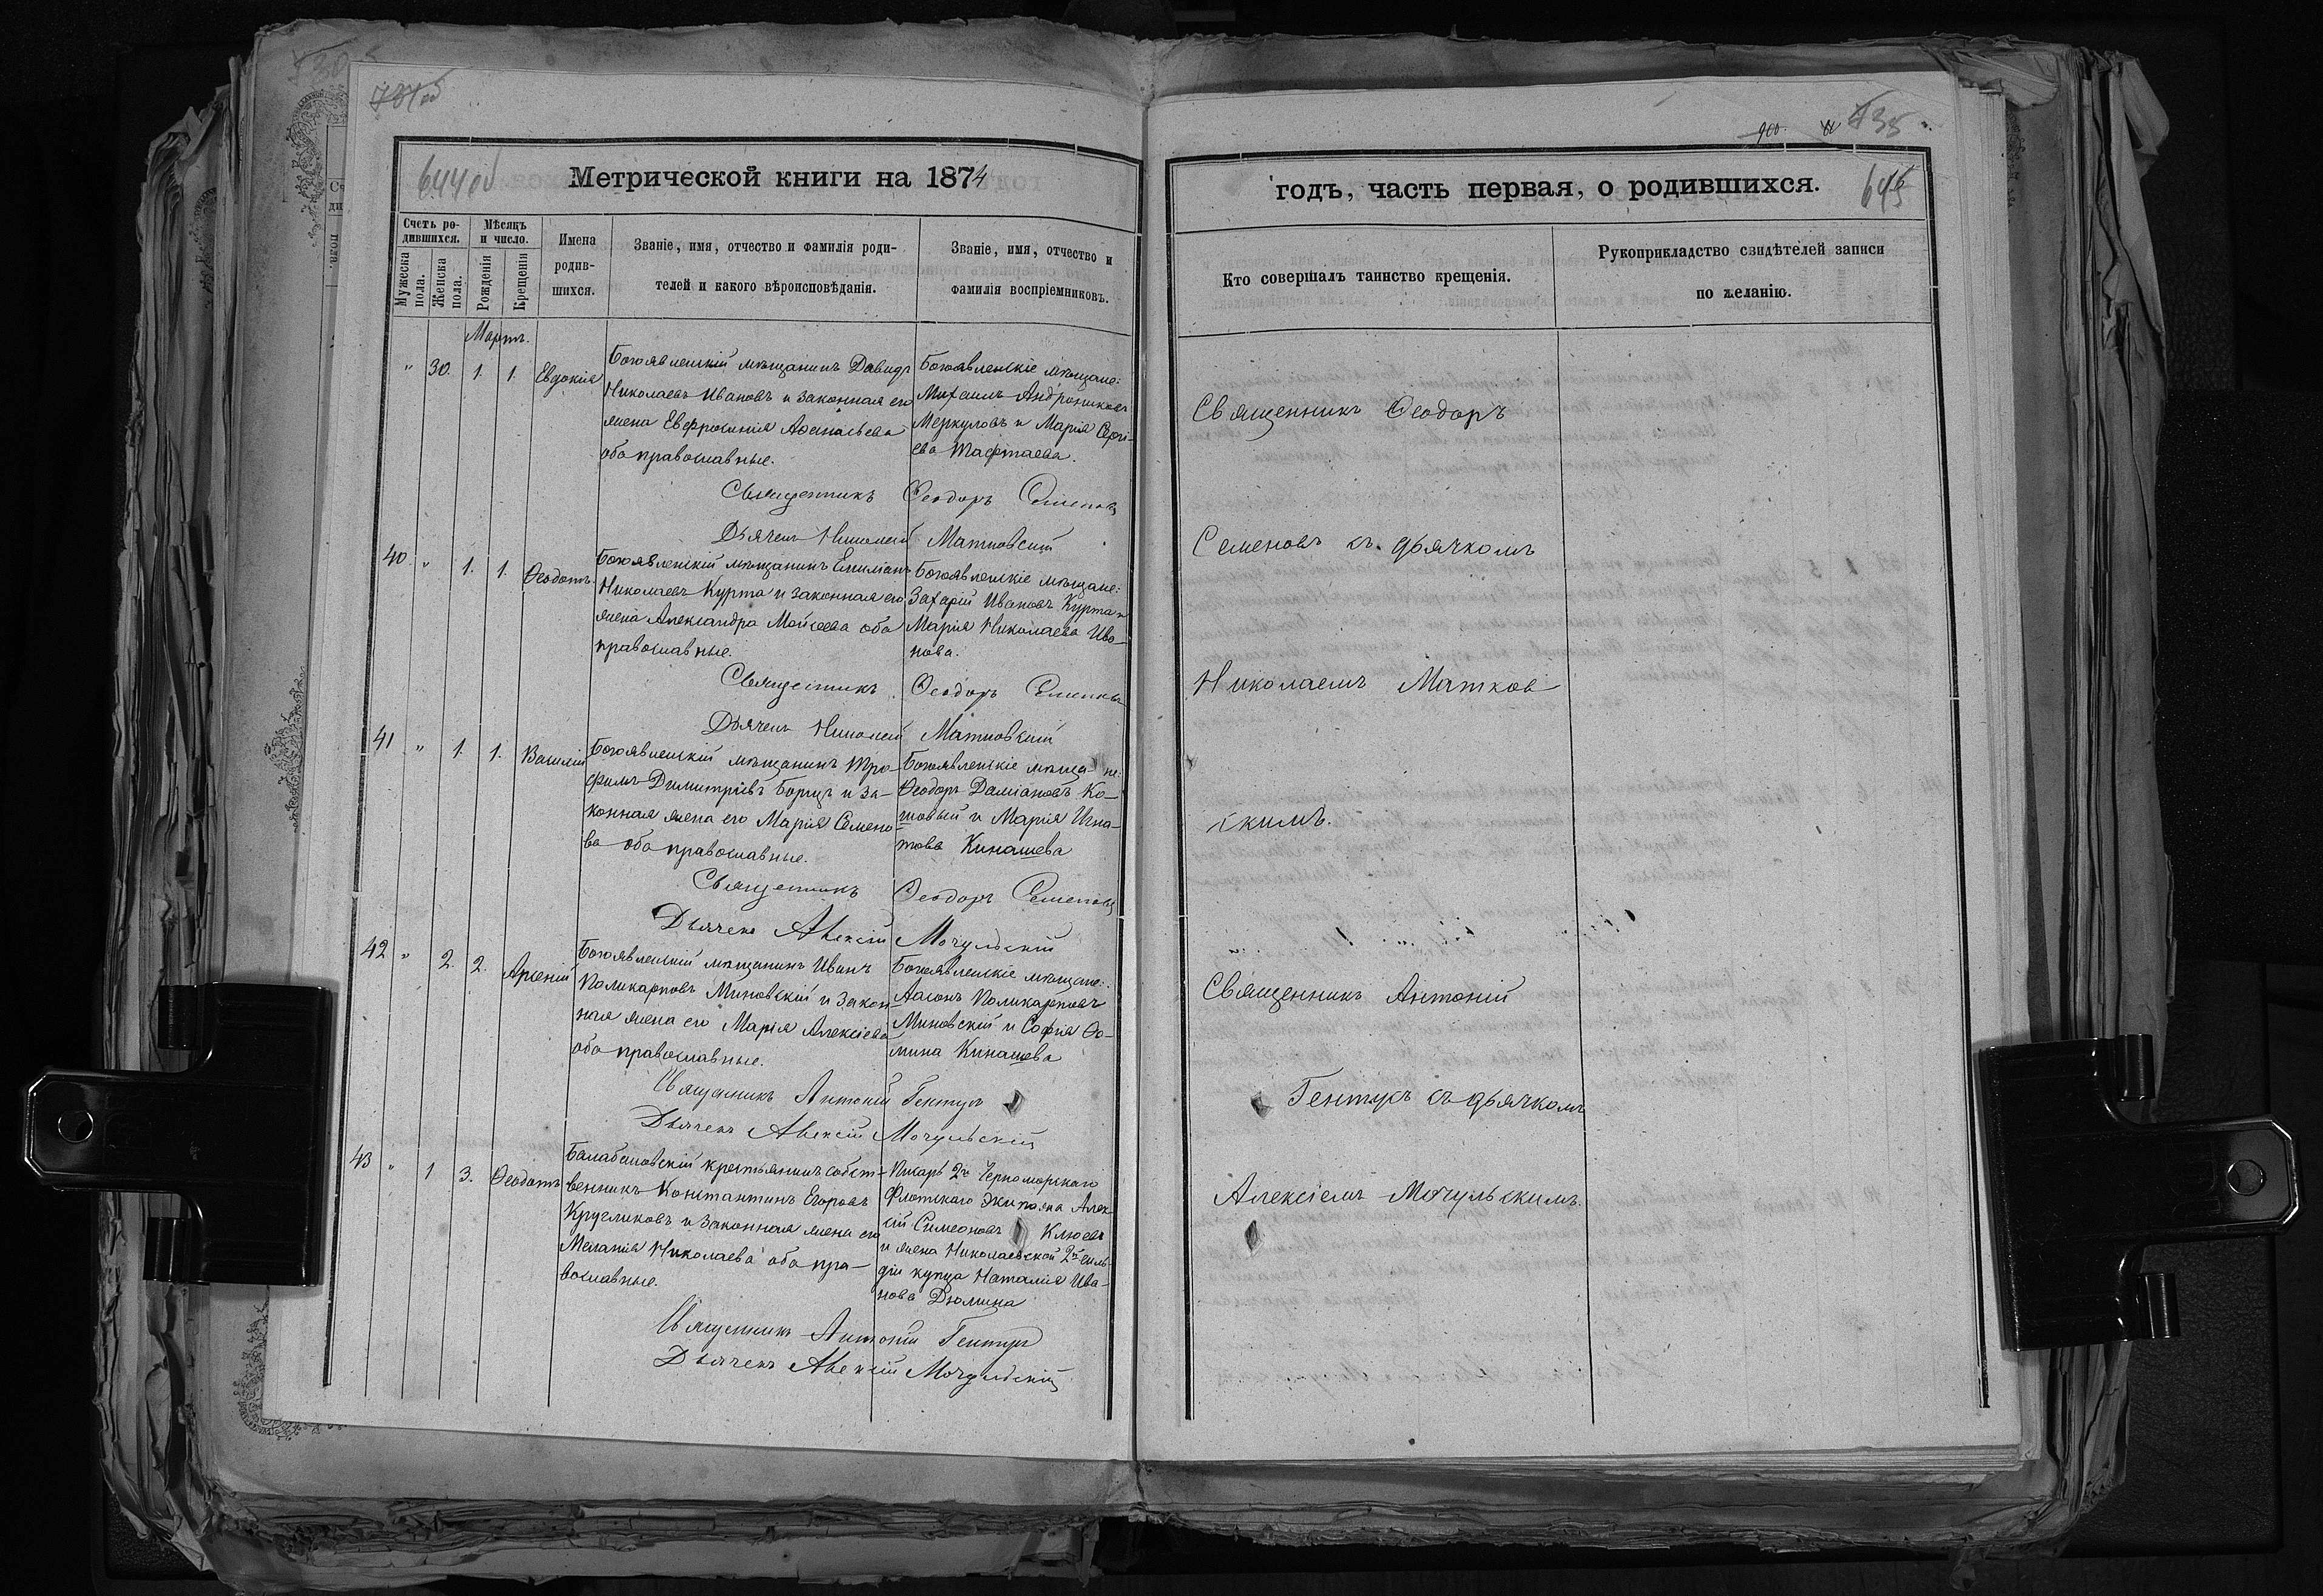 644об
Метрической книги на 1874
Счетъ ро-
дившихся.
Мѣсяцъ
и число.
Мужеска
пола.
Женска
пола.
Рожденія
Крещенія
Имена
родив-
шихся.
Званіе, имя, отчество и фамилія роди-
телей и какого вѣроисповѣданія.
Званіе, имя, отчество и
фамилія воспріемниковъ.
Мартъ.
" 30. 1. 1. Евдокія
Богоявленскій мѣщанинъ Давидъ
Николаевъ Ивановъ и законная его
жена Евфросинія Аѳанасьева
оба православные.
Богоявленскіе мѣщане:
Михаилъ Андрониковъ
Меркуловъ и Марія Сергі-
ева Тафтаева.
Священникъ Ѳеодоръ Семеновъ
Дьячекъ Николай Матковскій
40. " 1. 1. Ѳеодотъ.
Богоявленскій мѣщанинъ Емиліанъ
Николаевъ Курта и законная его
жена Александра Моисеева оба
православные.
Богоявленскіе мѣщане:
Захарій Ивановъ Курта и
Марія Николаева Ива-
нова.
Священникъ Ѳеодоръ Семеновъ
Дьячекъ Николай Матковскій
41 " 1. 1. Василій
Богоявленскій мѣщанинъ Тро-
фимъ Димитріевъ Борщъ и за-
конная жена его Марія Семено-
ва оба православные.
Богоявленскіе мѣща-не:
Ѳеодоръ Даміановъ Ко-
шовый и Марія Игна-
това Кинашева
Священникъ Ѳеодоръ Семеновъ
Дьячекъ Алексій Мочульскій
42 " 2. 2. Арсеній
Богоявленскій мѣщанинъ Иванъ
Поликарповъ Миновскій и закон-
ная жена его Марія Алексіева
оба православные.
Богоявленскіе мѣщане:
Поликарповъ
Миновскій и Софія Ѳо-
мина Кинашева
Священникъ Антоній Гентукъ
Дьячекъ Алексій Мочульскій
43 " 1 3. Ѳеодотъ
крестьянинъ собст-
венникъ Константинъ Егоровъ
Кругликовъ и законная жена его
Меланія Николаева оба пра-
вославные.
Писарь 2го Черноморскаго
Флотскаго Экипажа Алек-
сій Симеоновъ Клюевъ
и жена Николаевской 2й гиль-
діи купца Наталія Ива-
нова Дюмина
Священникъ Антоній Гентукъ
Дьячекъ Алексій Мочульскій
735
645
годъ, часть первая, о родившихся.
Кто совершалъ таинство крещенія.
Рукоприкладство свидѣтелей записи
по желанію.
Священникъ Ѳеодоръ
Семеновъ съ дьячкомъ
Николаемъ Матков
скимъ.
Священникъ Антоній
Гентукъ съ дьячкомъ
Алексіемъ Мочульскимъ.